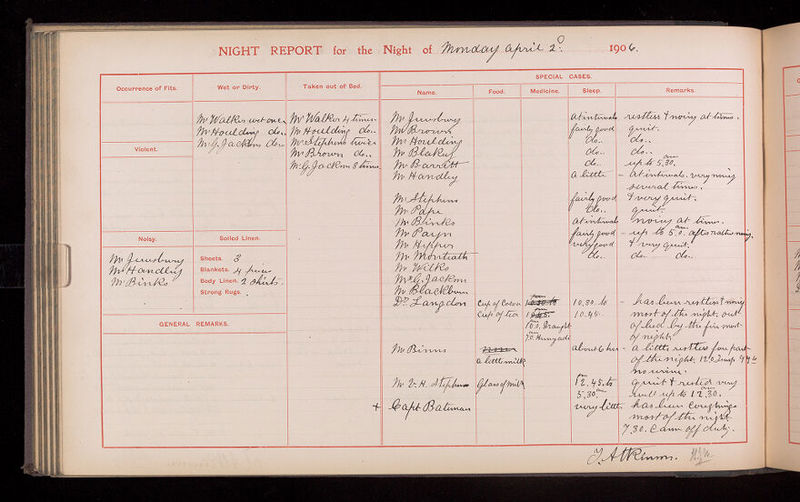 NIGHT REPORT for the Night of Monday April 2nd. 1906.
SPECIAL CASES.
Occurrence of Fits. Wet or Dirty. Taken out of Bed. Name. Food. Medicine. Sleep. Remarks.
Mr Walker wet once Mr Walker 4 times.
Mr Houlding do.. Mr Houlding do..
Mr G. Jackson do.. Mr Stephens twice
Mr Brown do..
Mr G. Jackson 3 times
Violent.
Noisy. Soiled Linen.
Mr Handley
Mr Binks
Sheets. 3
Blankets. 4
Body Linen. 2 Shirts.
Strong Rugs.
GENERAL REMARKS.
at intervals restless & noisy at times.
Mr Brown fairly good quiet.
Mr Houlding do.. do..
Mr Blakey do.. do..
Mr Barratt do.. up to 5.30. am
Mr Handley a little - at intervals. very noisy
several times.
Mr Stephens fairly good & very quiet.
Mr Pape do.. quiet.
Mr Binks at intervals noisy at times.
Mr Payn fairly good - up to 5.0. am after rather noisy
very good & very quiet.
Mr Monteath do.. do.. do..
Mr Wilks
Mr G. Jackson
Mr Blackburn
Dr. Langdon Cup of Cocoa 10.30. to - has been restless & noisy
Cup of tea 10.45. most of the night. out
of bed by the fire most
of night.
Mr Binns about 6 hrs - a little restless fore part
a little milk of the night.
no urine.
Mr V. H. Stephens Glass of milk 12.45. to quiet & rested very
5.30. well up to 12.30.
+ Capt Bateman very little has been Coughing
most of the night
7.30. C came off duty.
J. Atkinson.